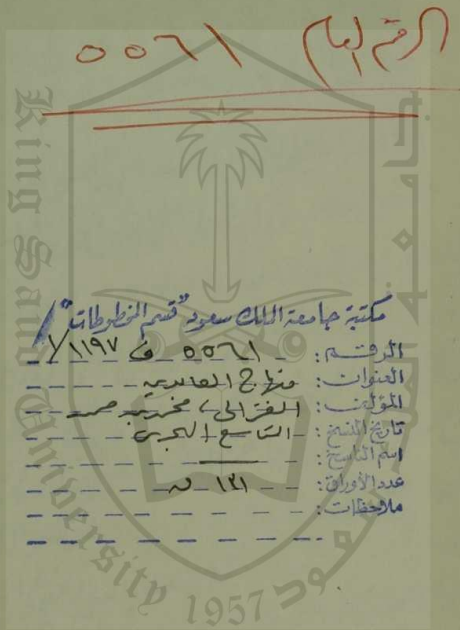 الرقم العام ٥٥٦١
مكتبة جامعة الملك سعود "قسم المخطوطات"
الرقم: ٥٥٦١ ف ١١٩٧/١
العنوان: منهاج العابدين
المؤلف: الغزالي، محمد بن محمد
تاريخ النسخ: التاسع الهجري
اسم الناسخ:
عدد الأوراق: ١٣١ ق
ملاحظات:
King Saud University
1957